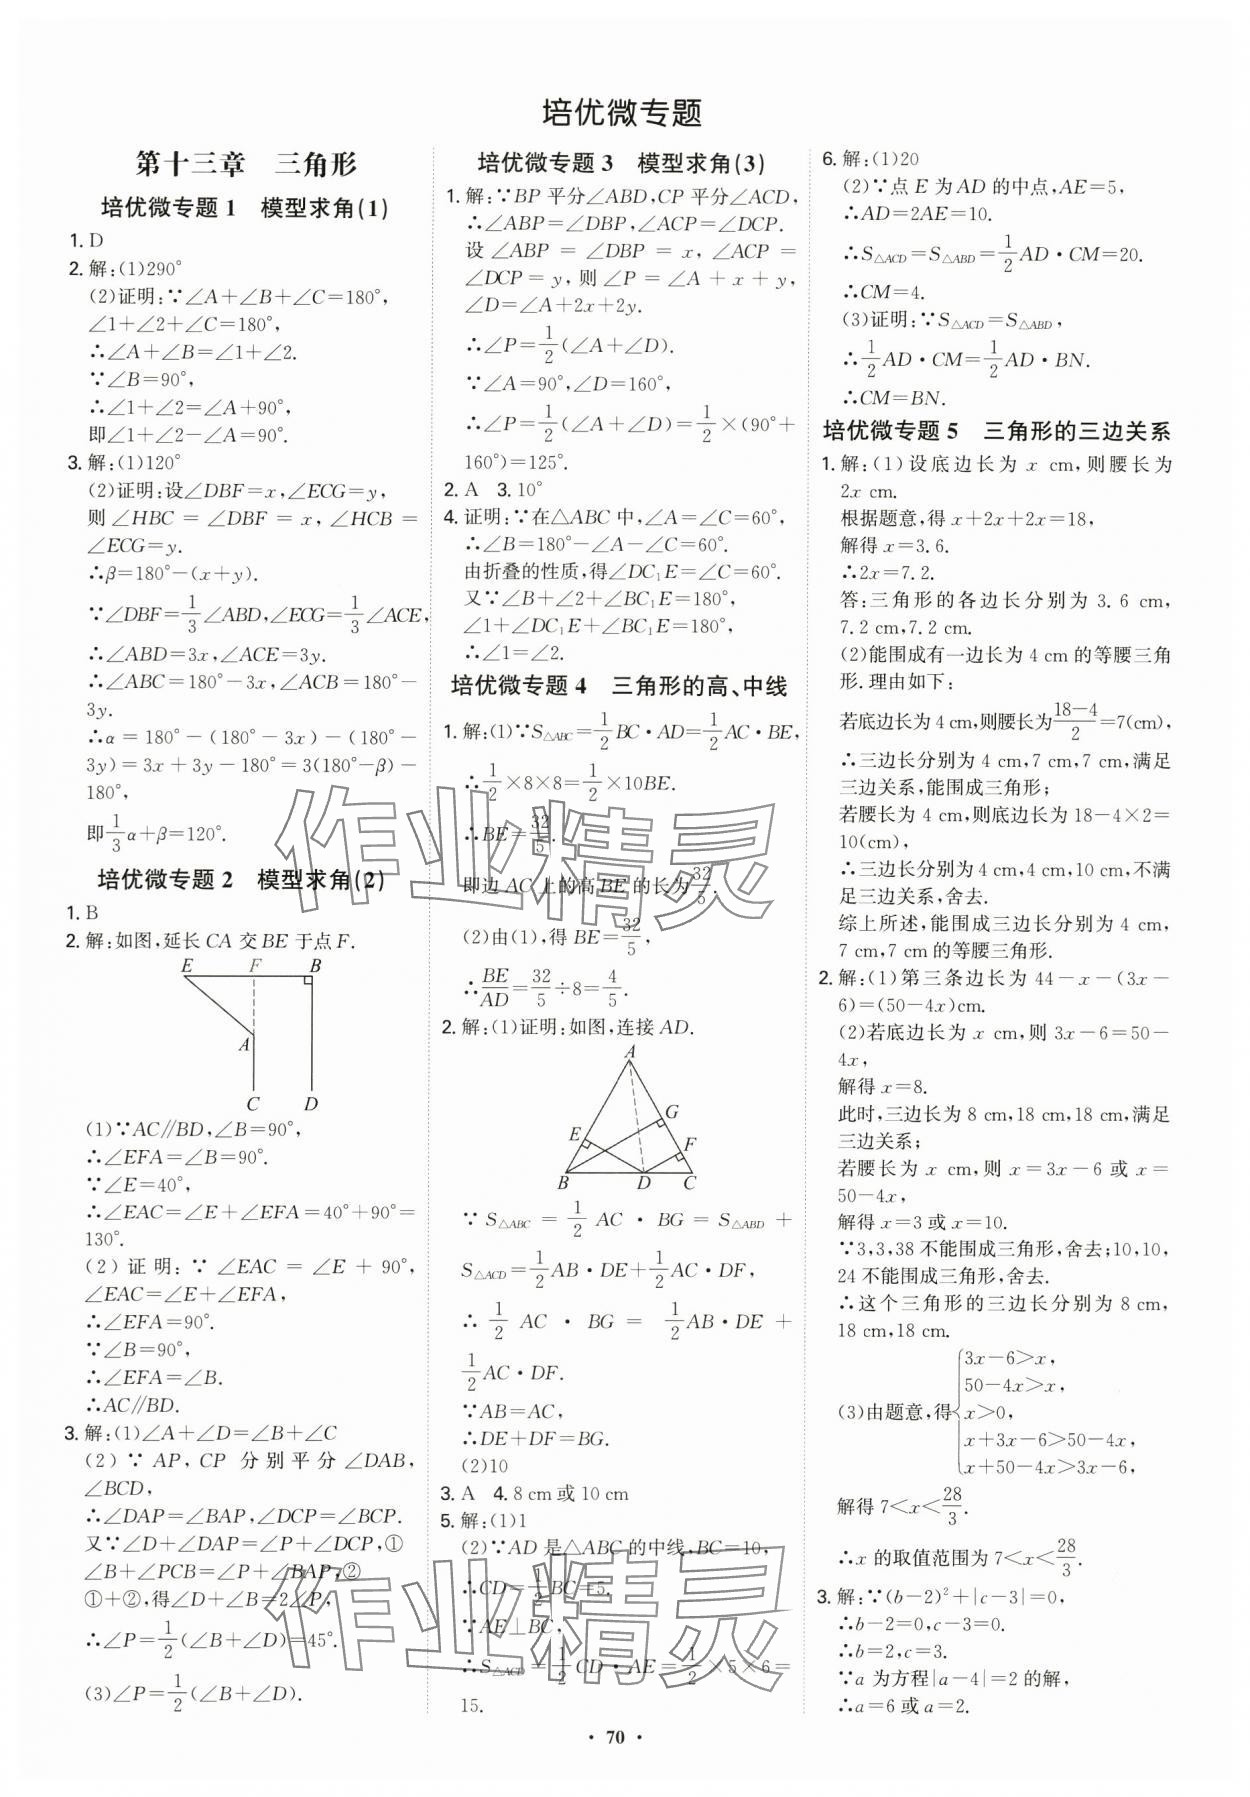 培优微专题
第十三章　三角形
培优微专题 1　模型求角(1)
1. D
2. 解:(1)290°
(2)证明:∵∠A+∠B+∠C=180°,
∠1+∠2+∠C=180°,
∴∠A+∠B=∠1+∠2.
∵∠B=90°,
∴∠1+∠2=∠A+90°,
即∠1+∠2-∠A=90°.
3. 解:(1)120°
(2)证明:设∠DBF=x,∠ECG=y,
则∠HBC=∠DBF=x,∠HCB=
∠ECG=y.
∴β=180°-(x+y).
∵∠DBF=1/3∠ABD,∠ECG=1/3∠ACE,
∴∠ABD=3x,∠ACE=3y.
∴∠ABC=180°-3x,∠ACB=180°-
3y.
∴α=180°-(180°-3x)-(180°-
3y)=3x+3y-180°=3(180°-β)-
180°,
即1/3α+β=120°.
培优微专题 2　模型求角(2)
1. B
2. 解:如图,延长 CA 交 BE 于点 F.
E F B
A
C D
(1)∵AC∥BD,∠B=90°,
∴∠EFA=∠B=90°.
∵∠E=40°,
∴∠EAC=∠E+∠EFA=40°+90°=
130°.
(2)证明:∵∠EAC=∠E+90°,
∠EAC=∠E+∠EFA,
∴∠EFA=90°.
∵∠B=90°,
∴∠EFA=∠B.
∴AC∥BD.
3. 解:(1)∠A+∠D=∠B+∠C
(2)∵AP,CP 分别平分∠DAB,
∠BCD,
∴∠DAP=∠BAP,∠DCP=∠BCP.
又∵∠D+∠DAP=∠P+∠DCP,①
∠B+∠PCB=∠P+∠BAP,②
①+②,得∠D+∠B=2∠P,
∴∠P=1/2(∠B+∠D)=45°.
(3)∠P=1/2(∠B+∠D).
培优微专题 3　模型求角(3)
1. 解:∵BP 平分∠ABD,CP 平分∠ACD,
∴∠ABP=∠DBP,∠ACP=∠DCP.
设∠ABP=∠DBP=x,∠ACP=
∠DCP=y,则∠P=∠A+x+y,
∠D=∠A+2x+2y.
∴∠P=1/2(∠A+∠D).
∵∠A=90°,∠D=160°,
∴∠P=1/2(∠A+∠D)=1/2×(90°+
160°)=125°.
2. A　3. 10°
4. 证明:∵在△ABC 中,∠A=∠C=60°,
∴∠B=180°-∠A-∠C=60°.
由折叠的性质,得∠DC₁E=∠C=60°.
又∵∠B+∠2+∠BC₁E=180°,
∠1+∠DC₁E+∠BC₁E=180°,
∴∠1=∠2.
培优微专题 4　三角形的高、中线
1. 解:(1)∵S△ABC=1/2BC·AD=1/2AC·BE,
∴1/2×8×8=1/2×10BE.
∴BE=32/5.
即边 AC 上的高 BE 的长为32/5.
(2)由(1),得 BE=32/5,
∴BE/AD=32/5÷8=4/5.
2. 解:(1)证明:如图,连接 AD.
A
G
E F
B D C
∵S△ABC=1/2AC·BG=S△ABD+
S△ACD=1/2AB·DE+1/2AC·DF,
∴1/2AC·BG=1/2AB·DE+
1/2AC·DF.
∵AB=AC,
∴DE+DF=BG.
(2)10
3. A　4. 8 cm 或 10 cm
5. 解:(1)1
(2)∵AD 是△ABC 的中线,BC=10,
∴CD=1/2BC=5.
∵AE⊥BC,
∴S△ACD=1/2CD·AE=1/2×5×6=
15.
6. 解:(1)20
(2)∵点 E 为 AD 的中点,AE=5,
∴AD=2AE=10.
∴S△ACD=S△ABD=1/2AD·CM=20.
∴CM=4.
(3)证明:∵S△ACD=S△ABD,
∴1/2AD·CM=1/2AD·BN.
∴CM=BN.
培优微专题 5　三角形的三边关系
1. 解:(1)设底边长为 x cm,则腰长为
2x cm.
根据题意,得 x+2x+2x=18,
解得 x=3.6.
∴2x=7.2.
答:三角形的各边长分别为 3.6 cm,
7.2 cm,7.2 cm.
(2)能围成有一边长为 4 cm 的等腰三角
形.理由如下:
若底边长为 4 cm,则腰长为(18-4)/2=7(cm),
∴三边长分别为 4 cm,7 cm,7 cm,满足
三边关系,能围成三角形;
若腰长为 4 cm,则底边长为 18-4×2=
10(cm),
∴三边长分别为 4 cm,4 cm,10 cm,不满
足三边关系,舍去.
综上所述,能围成三边长分别为 4 cm,
7 cm,7 cm 的等腰三角形.
2. 解:(1)第三条边长为 44-x-(3x-
6)=(50-4x)cm.
(2)若底边长为 x cm,则 3x-6=50-
4x,
解得 x=8.
此时,三边长为 8 cm,18 cm,18 cm,满足
三边关系;
若腰长为 x cm,则 x=3x-6 或 x=
50-4x,
解得 x=3 或 x=10.
∵3,3,38 不能围成三角形,舍去;10,10,
24 不能围成三角形,舍去.
∴这个三角形的三边长分别为 8 cm,
18 cm,18 cm.
3x-6>x,
50-4x>x,
(3)由题意,得 x>0,
x+3x-6>50-4x,
x+50-4x>3x-6,
解得 7<x<28/3.
∴x 的取值范围为 7<x<28/3.
3. 解:∵(b-2)²+|c-3|=0,
∴b-2=0,c-3=0.
∴b=2,c=3.
∵a 为方程|a-4|=2 的解,
∴a=6 或 a=2.
作业精灵
作业精灵
· 70 ·